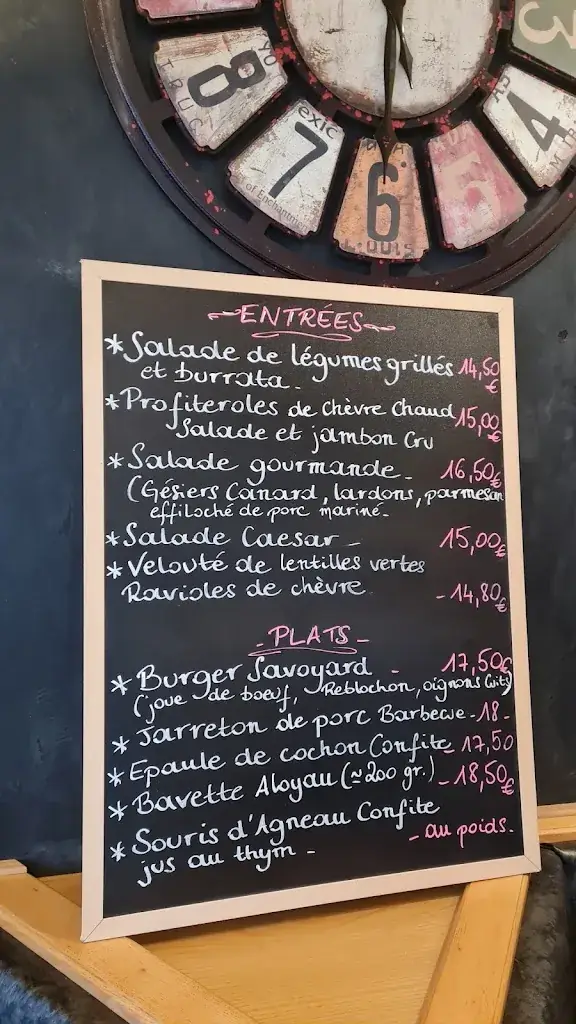 8
TRUC
YO
exic
7
of Enchantm
6
Louis
5
4
3
ENTRÉES
*Salade de légumes grillés 14,50
et burrata. €
*Profiteroles de chèvre chaud 15,00€
Salade et jambon cru
*Salade gourmande - 16,50€
(Gésiers Canard, lardons, parmesan
effiloché de porc mariné.
*Salade Caesar - 15,00€
*Velouté de lentilles vertes
Ravioles de chèvre - 14,80€
- PLATS -
*Burger Savoyard - 17,50€
(joue de boeuf, Reblochon, oignons cuits)
*Jarreton de porc Barbecue - 18 -
*Epaule de cochon Confite 17,50
*Bavette Aloyau (≈200 gr.) - 18,50€
*Souris d'Agneau Confite
jus au thym - - au poids.